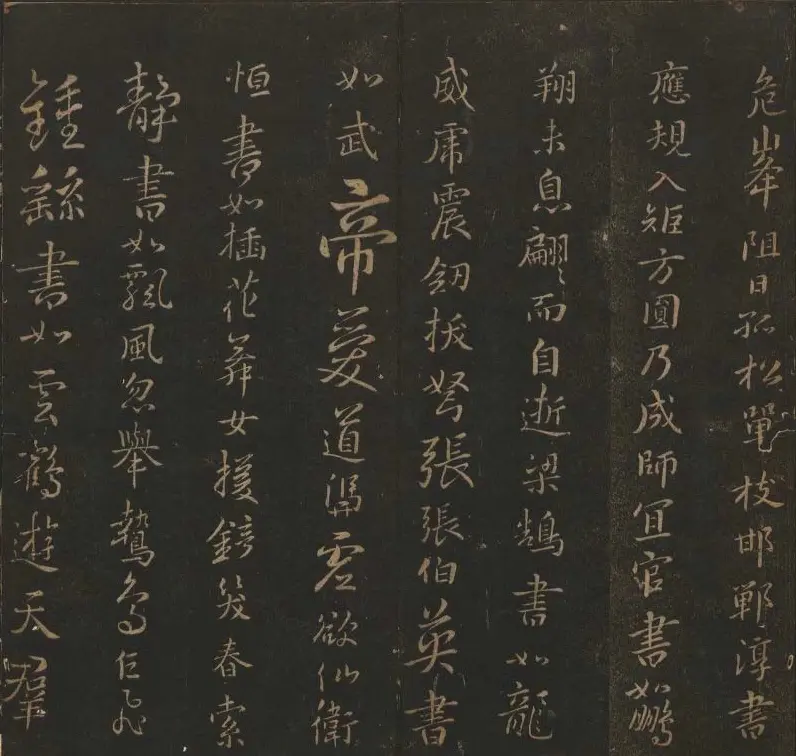 危峯阻日孤松單枝邯鄲淳書
應規入矩方圓乃成師宜官書如鵬
翔未息翩々而自逝梁鵠書如龍
威虎震劒拔弩張張伯英書
如武帝愛道馮虛欲仙衛
恒書如插花舞女援鏡笑春索
靜書如飄風忽舉鷙鳥乍飛
鍾繇書如雲鶴遊天羣